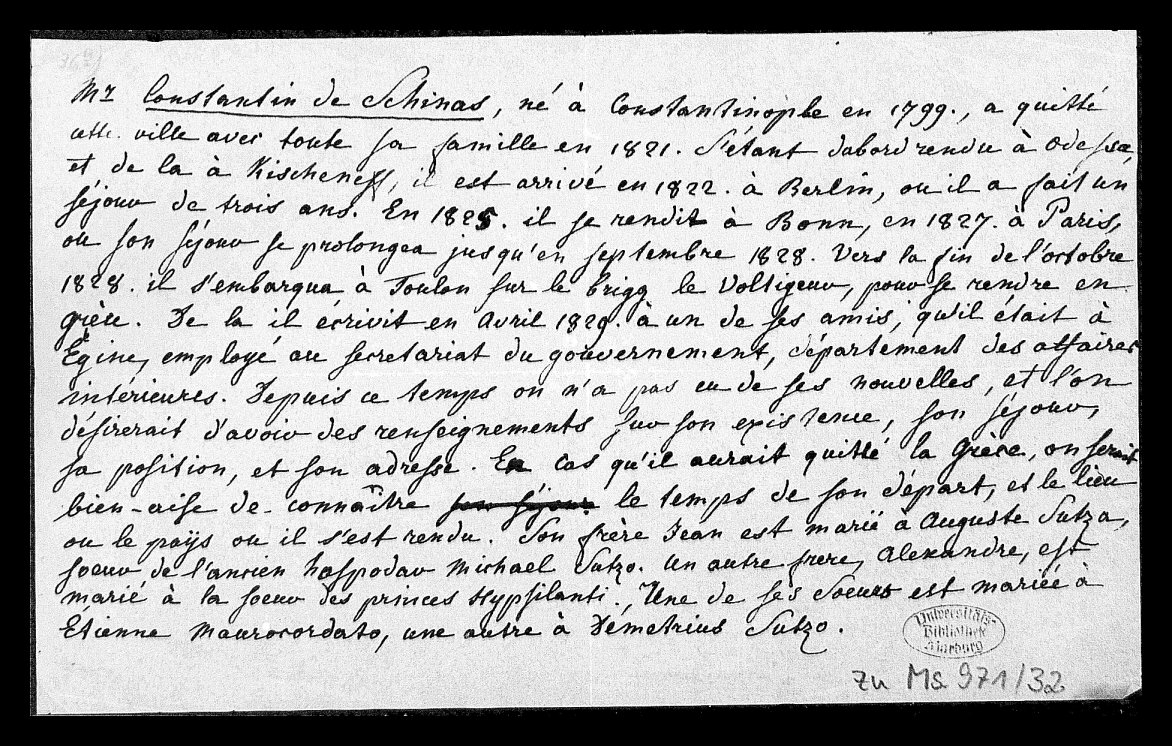 Mr Constantin de Schinas, né à Constantinople en 1799., a quitté
cette ville avec toute sa famille en 1821. S'étant dabord rendu à Odessa,
et, de la à Kischeneff, il est arrivé en 1822. à Berlin, ou il a fait un
séjour de trois ans. En 1825. il se rendit à Bonn, en 1827. à Paris,
ou son séjour se prolongea jusqu'en septembre 1828. Vers la fin de l'octobre
1828. il s'embarqua à Toulon sur le brigg le Voltigeur, pour se rendre en
grèce. De la il écrivit en Avril 1829. à un de ses amis, qu'il était à
Égine, employé au secretariat du gouvernement, département des affaires
intérieures. Depuis ce temps on n'a pas eu de ses nouvelles, et l'on
désirerait d'avoir des renseignements sur son existence, son séjour,
sa position, et son adresse. En cas qu'il aurait quitté la Grèce, on serait
bien-aise de connaître son séjour le temps de son départ, et le lieu
ou le pays ou il s'est rendu. Son frère Jean est marié à Auguste Sutza,
soeur de l'ancien hospodar Michael Sutzo. Un autre frere, Alexandre, est
marié à la soeur des princes Hypsilanti., Une de ses Soeurs est mariée à
Étienne Maurocordato, une autre à Demetrius Sutzo.
Universitäts-
Bibliothek
Marburg
zu Ms 971/32